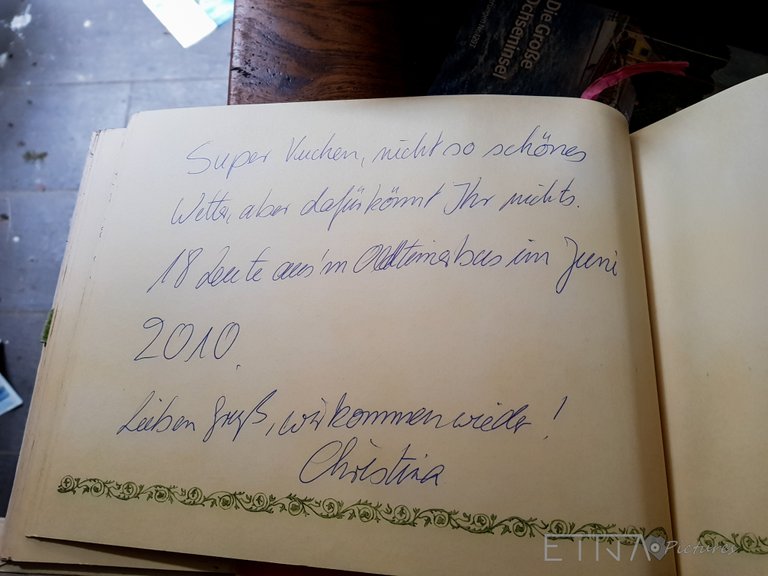 Die Große
Ochseninsel
Super Kuchen, nicht so schönes
Wetter, aber dafür könnt Ihr nichts.
18 Leute aus'm Oldtimerbus im Juni
2010.
Lieben Gruß, wir kommen wieder!
Christina
ETNA Pictures